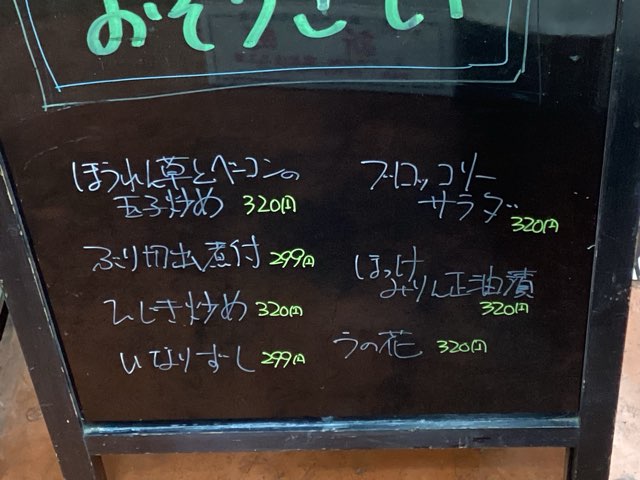 おそうざい
ほうれん草とベーコンの
玉子炒め 320円
ぶり切出煮付 299円
ひじき炒め 320円
いなりずし 299円
ブロッコリー
サラダ 320円
ほっけ
みりん正油漬
320円
うの花 320円